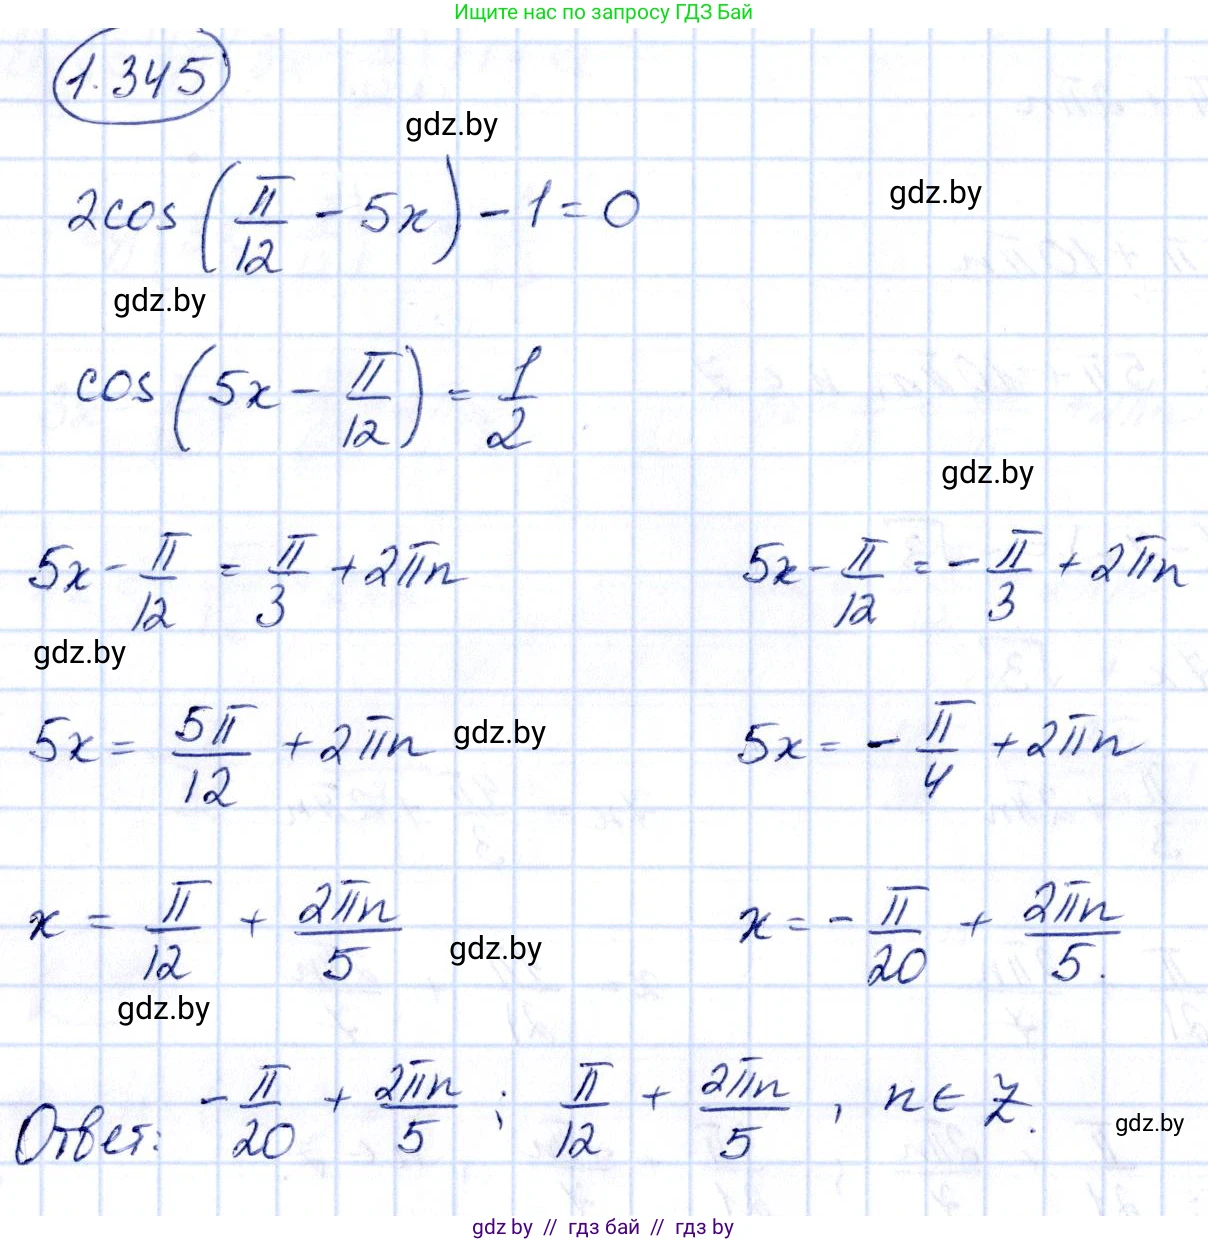 Ищите нас по запросу ГДЗ Бай
1.345
gdz.by
2cos(π/12 - 5x) - 1 = 0
gdz.by
gdz.by
cos(5x - π/12) = 1/2
gdz.by
5x - π/12 = π/3 + 2πn
5x - π/12 = -π/3 + 2πn
gdz.by
5x = 5π/12 + 2πn
gdz.by
5x = -π/4 + 2πn
x = π/12 + 2πn/5
gdz.by
x = -π/20 + 2πn/5.
gdz.by
Ответ: -π/20 + 2πn/5 ; π/12 + 2πn/5 , n ∈ Z.
gdz.by
gdz by // гдз бай // гдз by